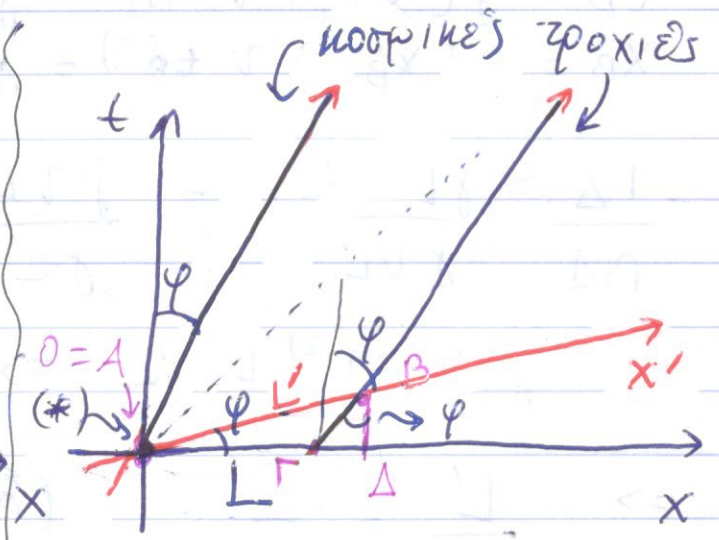 κοσμικές τροχιές
t
φ
φ
O = A
(*)
L'
φ
B
x'
φ
L
Γ
Δ
x
x